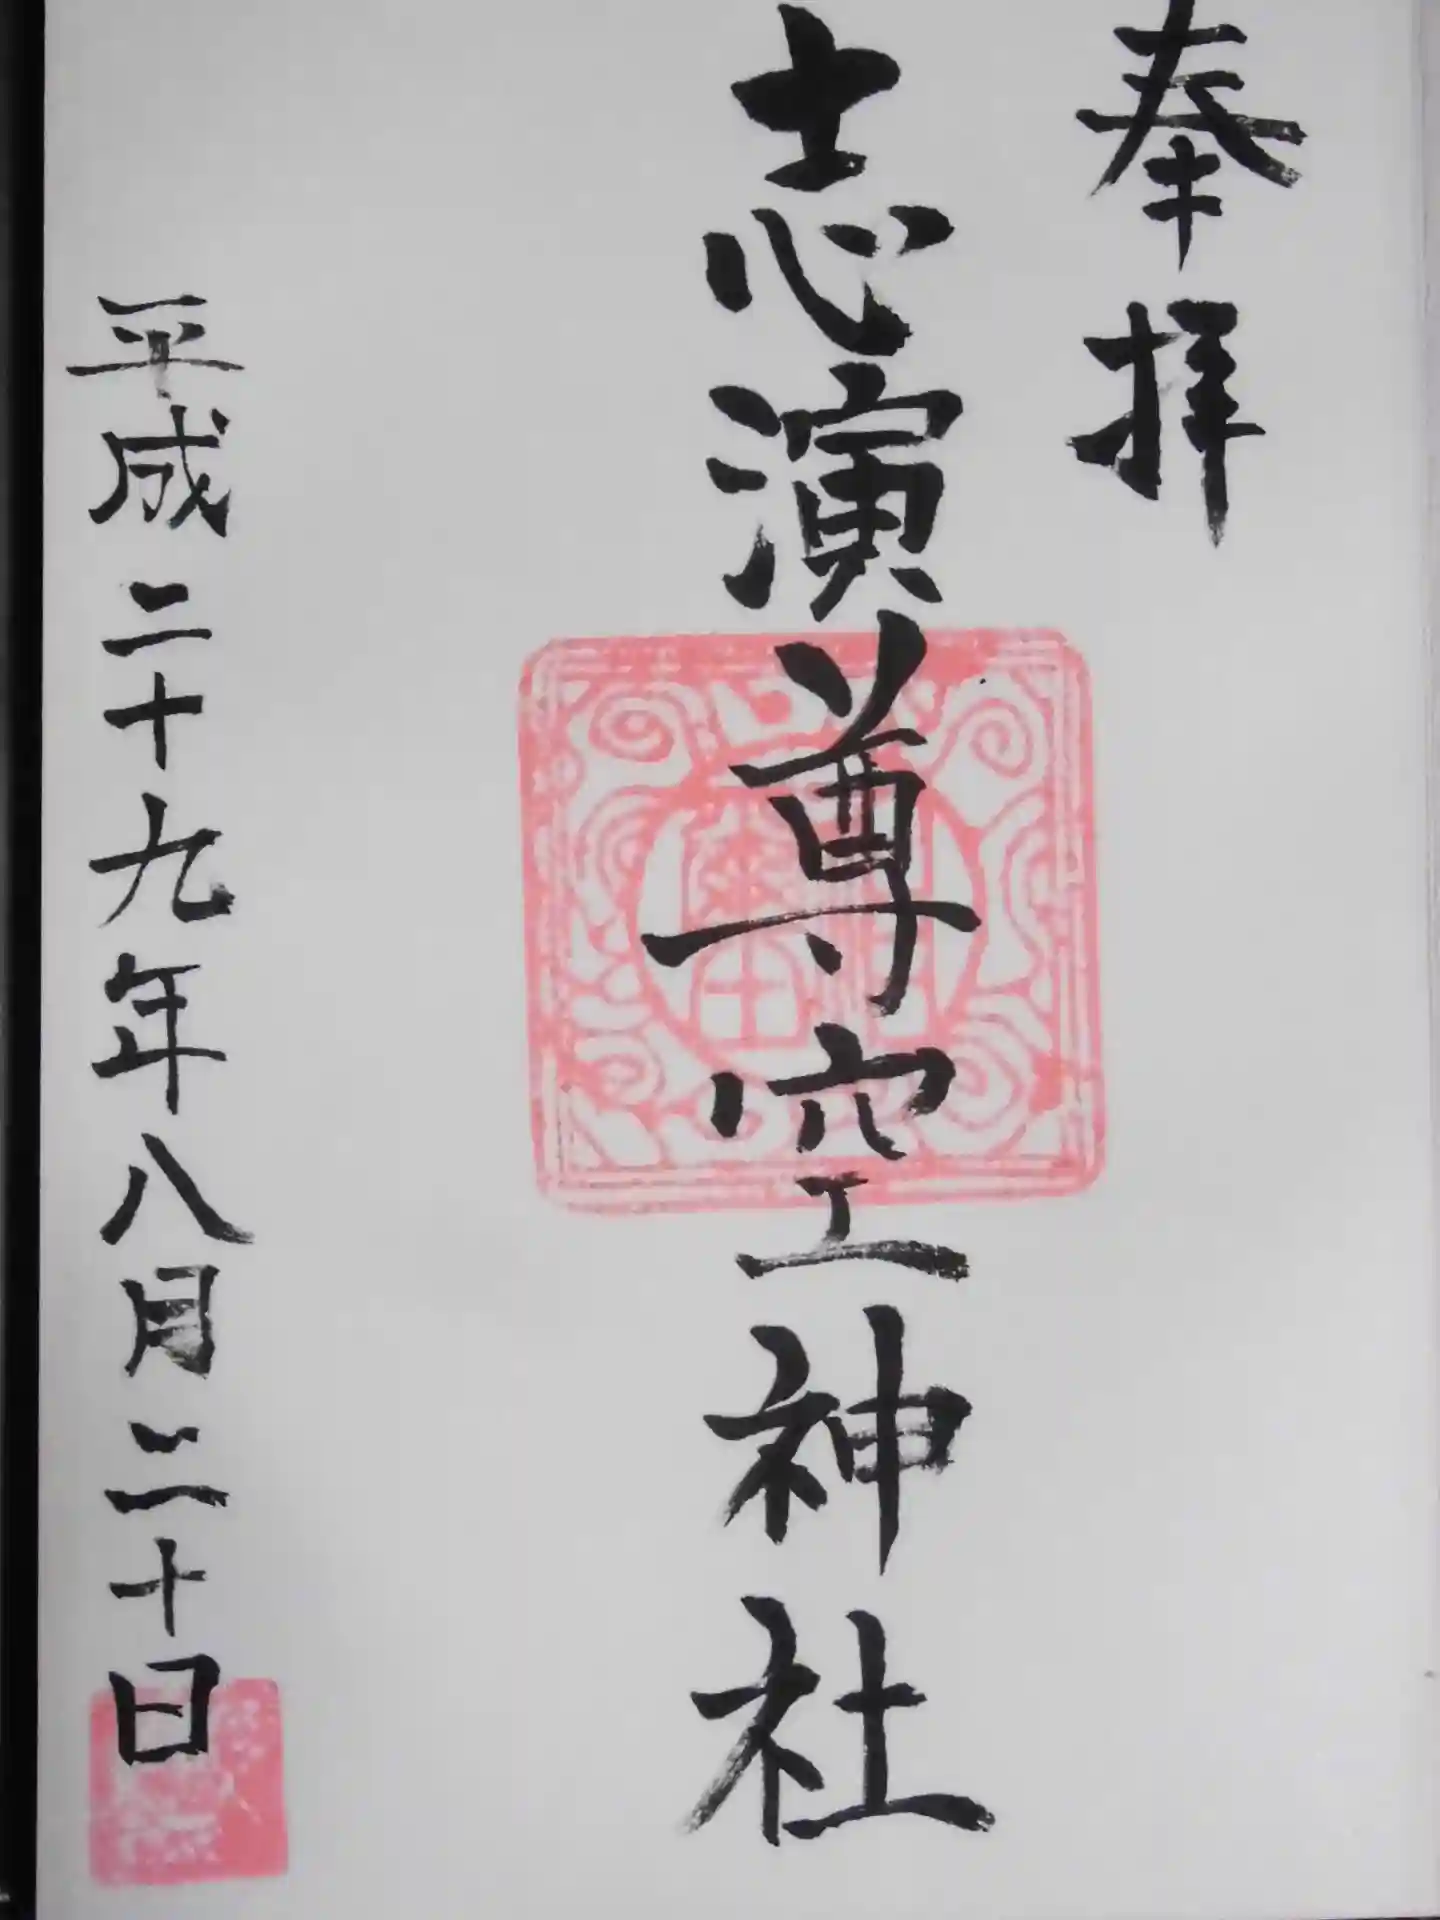 奉拝
志演尊空神社
平成二十九年八月二十日